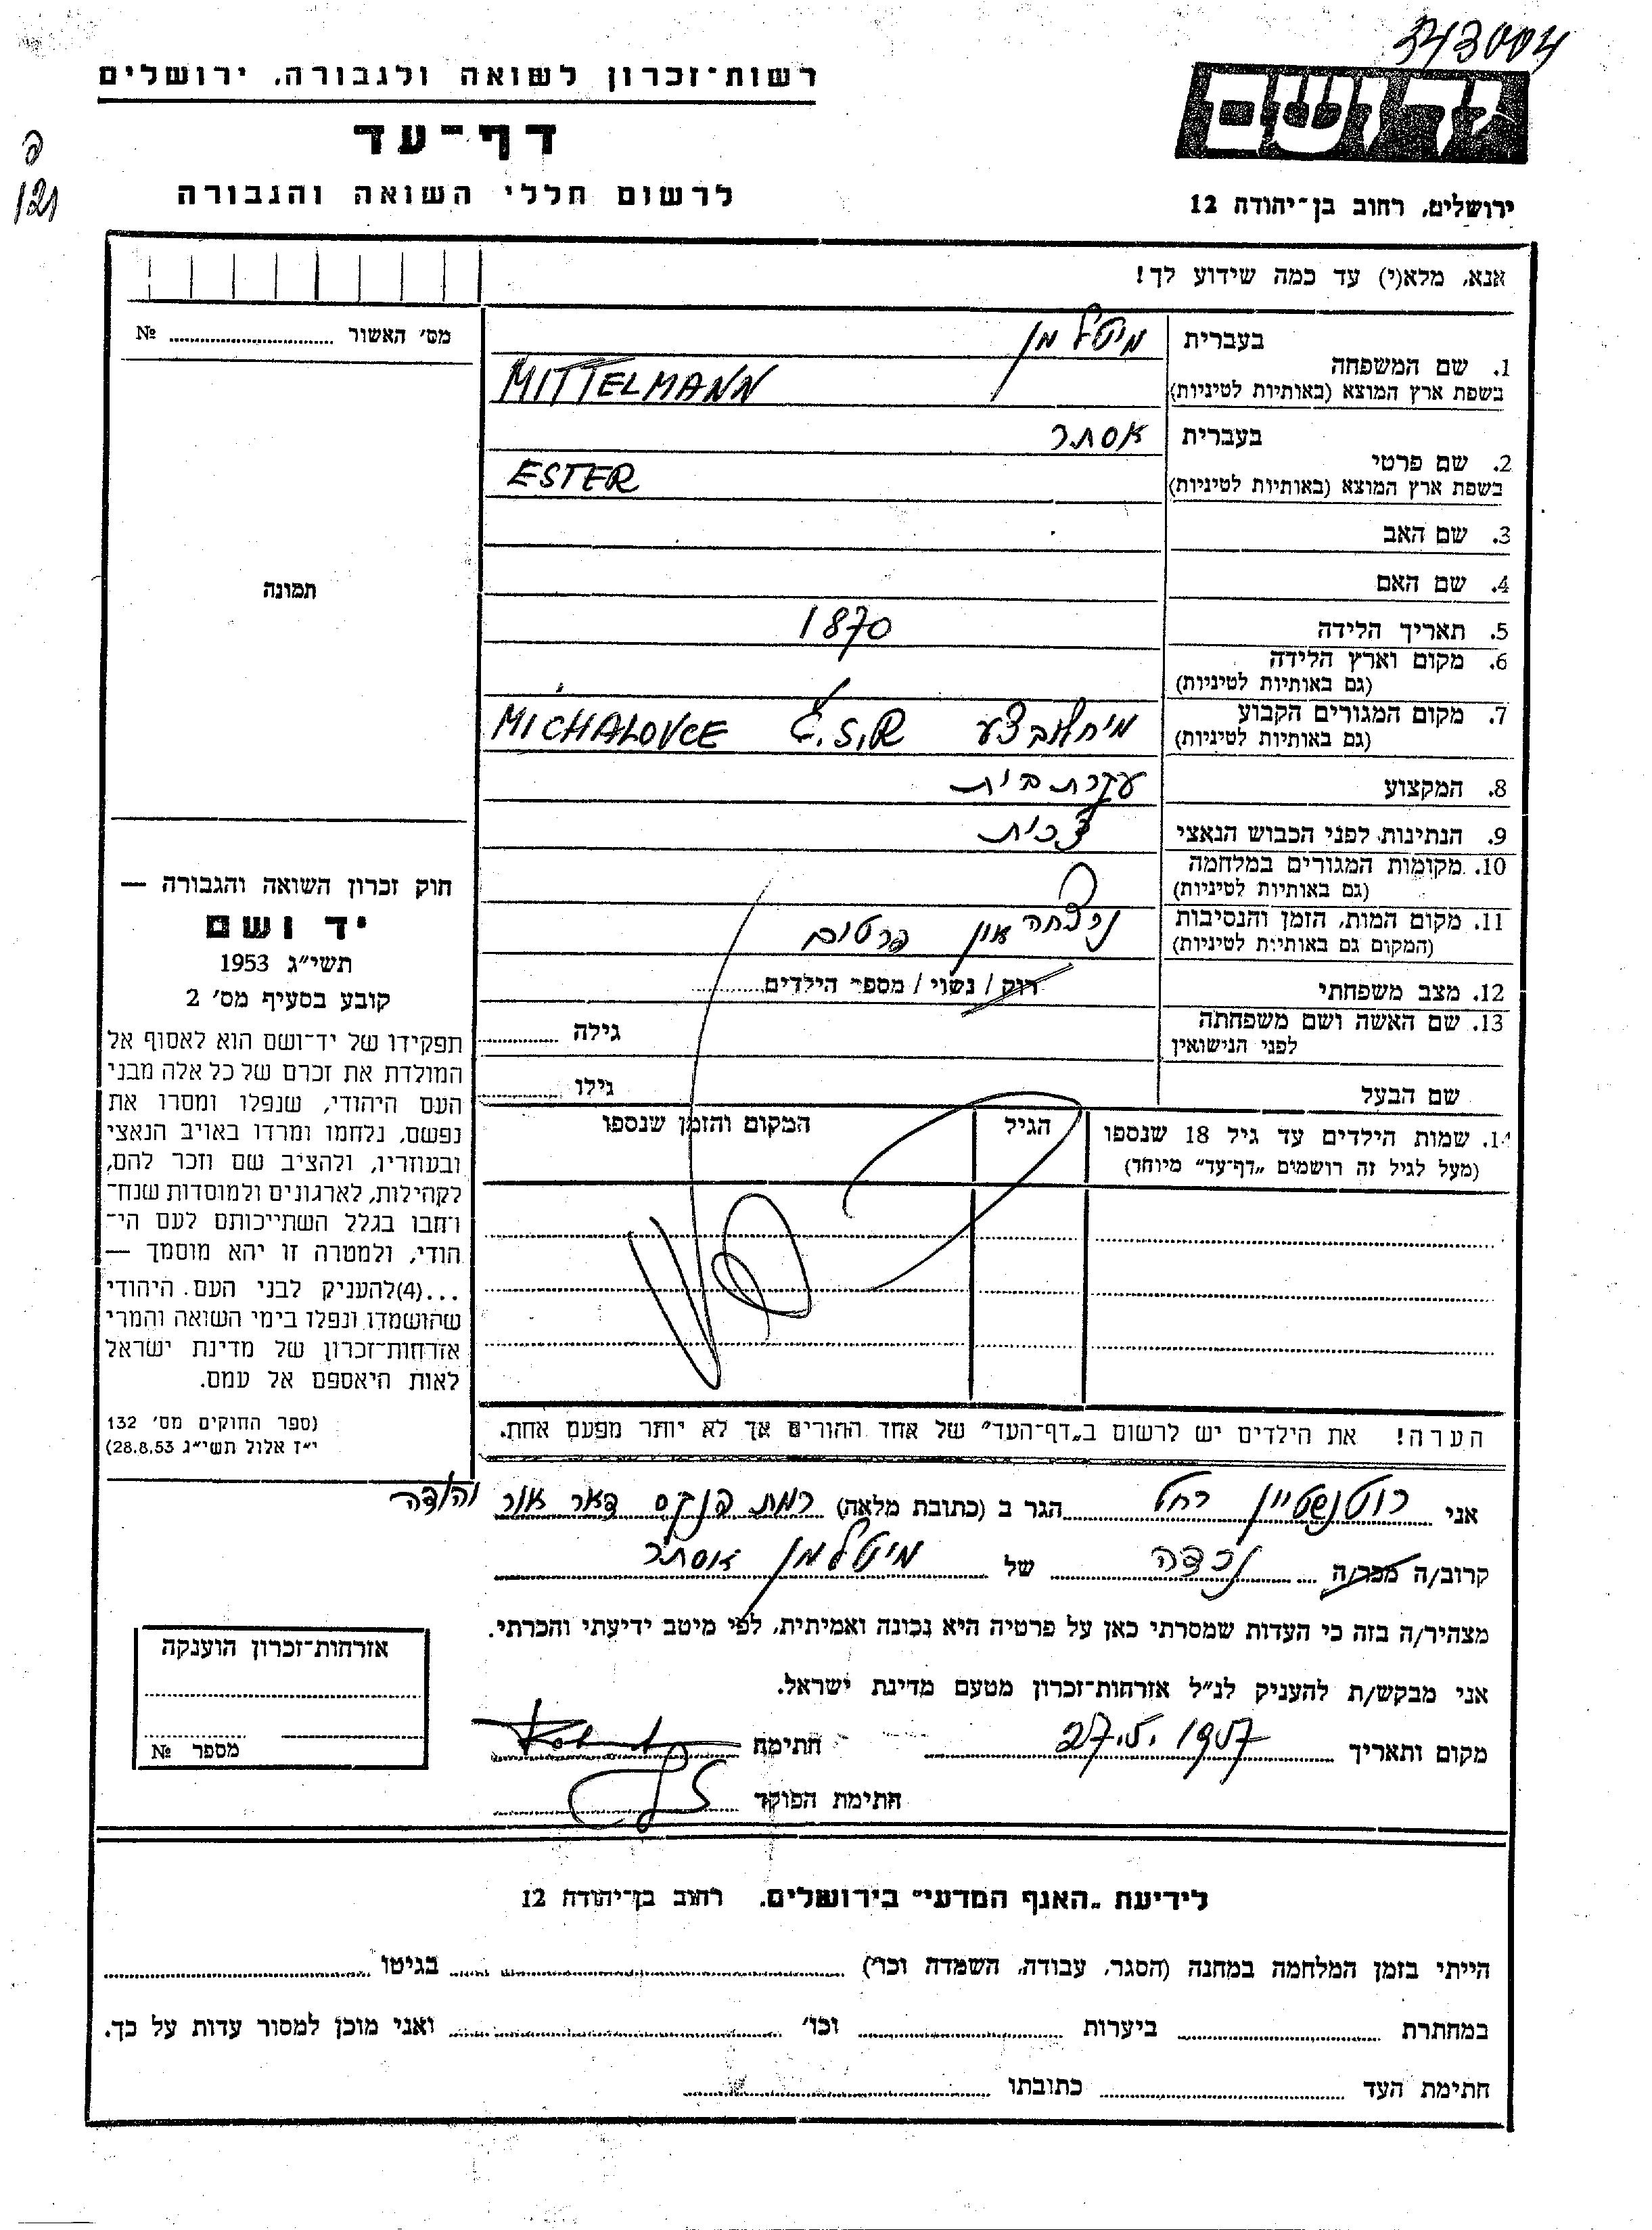 343004
ידושם
ירושלים, רחוב בן־יהודה 12
רשות־זכרון לשואה ולגבורה, ירושלים
דף־עד
לרשום חללי השואה והגבורה
פ
121
אנא, מלא(י) עד כמה שידוע לך!
1. שם המשפחה בעברית מיטלמן
בשפת ארץ המוצא (באותיות לטיניות) MITTELMANN
2. שם פרטי בעברית אסתר
בשפת ארץ המוצא (באותיות לטיניות) ESTER
3. שם האב
4. שם האם
5. תאריך הלידה 1870
6. מקום וארץ הלידה
(גם באותיות לטיניות)
7. מקום המגורים הקבוע מיחלובצע Č.S.R MICHALOVCE
(גם באותיות לטיניות)
8. המקצוע עקרת בית
9. הנתינות לפני הכבוש הנאצי צ'כית
10. מקומות המגורים במלחמה
(גם באותיות לטיניות)
11. מקום המות, הזמן והנסיבות נרצחה אין פרטים
(המקום גם באותיות לטיניות)
12. מצב משפחתי רווק / נשוי / מספר הילדים
13. שם האשה ושם משפחתה גילה
לפני הנישואין
שם הבעל גילו
14. שמות הילדים עד גיל 18 שנספו הגיל המקום והזמן שנספו
(מעל לגיל זה רושמים „דף־עד" מיוחד)
הערה! את הילדים יש לרשום ב„דף־העד" של אחד ההורים אך לא יותר מפעם אחת.
מס׳ האשור № 
תמונה
חוק זכרון השואה והגבורה —
יד ושם
תשי״ג 1953
קובע בסעיף מס׳ 2
תפקידו של יד־ושם הוא לאסוף אל
המולדת את זכרם של כל אלה מבני
העם היהודי, שנפלו ומסרו את
נפשם, נלחמו ומרדו באויב הנאצי
ובעוזריו, ולהציב שם וזכר להם,
לקהילות, לארגונים ולמוסדות שנח־
רחבו בגלל השתייכותם לעם הי־
הודי, ולמטרה זו יהא מוסמך —
...(4)להעניק לבני העם היהודי
שהושמדו ונפלו בימי השואה והמרי
אזרחות־זכרון של מדינת ישראל
לאות היאספם אל עמם.
(ספר החוקים מס׳ 132
י״ז אלול תשי״ג 28.8.53)
אני רוטנשטיין רחל הגר ב (כתובת מלאה) רמת פנקס דאר אור יהודה
קרוב/ה מכר/ה נכדה של מיטלמן אסתר
מצהיר/ה בזה כי העדות שמסרתי כאן על פרטיה היא נכונה ואמיתית, לפי מיטב ידיעתי והכרתי.
אני מבקש/ת להעניק לנ״ל אזרחות־זכרון מטעם מדינת ישראל.
מקום ותאריך 27.5.1957 חתימה
חתימת הפוקד
אזרחות־זכרון הוענקה
מספר №
לידיעת „האגף המדעי" בירושלים. רחוב בן־יהודה 12
הייתי בזמן המלחמה במחנה (הסגר, עבודה, השמדה וכו׳) בגיטו
במחתרת ביערות וכו׳ ואני מוכן למסור עדות על כך.
חתימת העד כתובתו